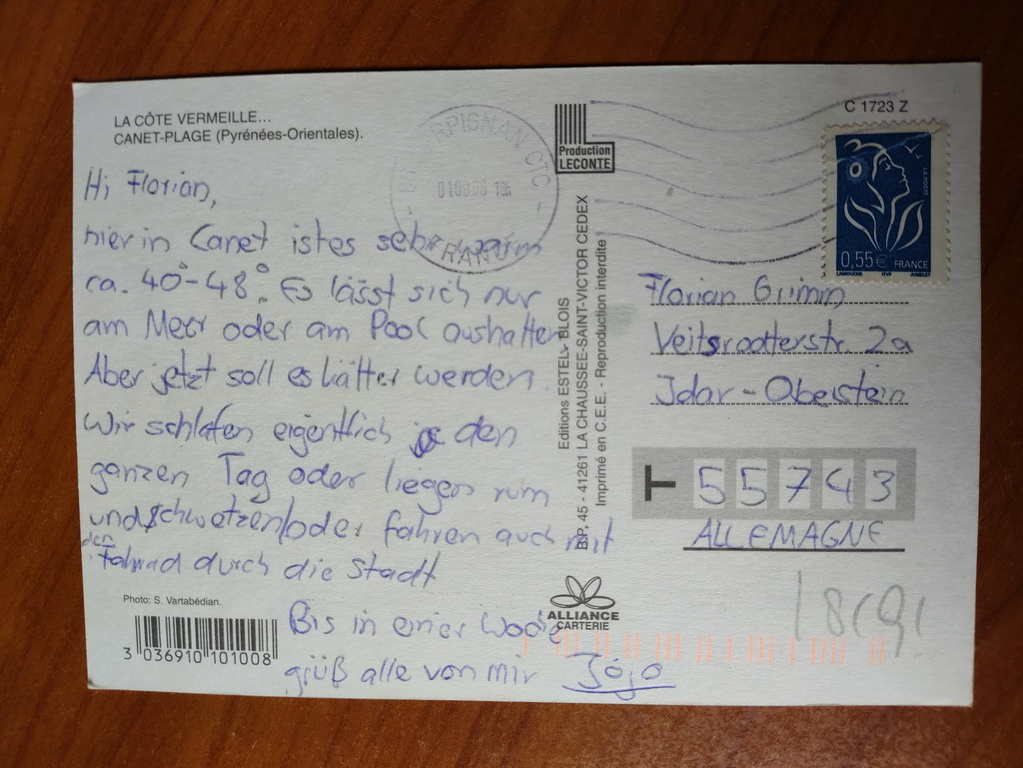 LA CÔTE VERMEILLE...
CANET-PLAGE (Pyrénées-Orientales).
Hi Florian,
hier in Canet ist es sehr warm
ca. 40°-48°. Es lässt sich nur
am Meer oder am Pool aushalten
Aber jetzt soll es kälter werden.
Wir schlafen eigentlich den
ganzen Tag oder liegen rum
und schwetzen/oder fahren auch mit
den Fahrrad durch die Stadt
Bis in einer Woche
grüß alle von mir Jojo
Photo: S. Vartabédian.
3 036910 101008
PERPIGNAN CTC
FRANCE
Production
LECONTE
Editions ESTEL - BLOIS
B.P. 45 - 41261 LA CHAUSSEE-SAINT-VICTOR CEDEX
Imprimé en C.E.E. - Reproduction interdite
ALLIANCE
CARTERIE
C 1723 Z
0,55€ FRANCE
Florian Grimm
Veitsrodterstr. 2a
Idar-Oberstein
T 55743
ALLEMAGNE